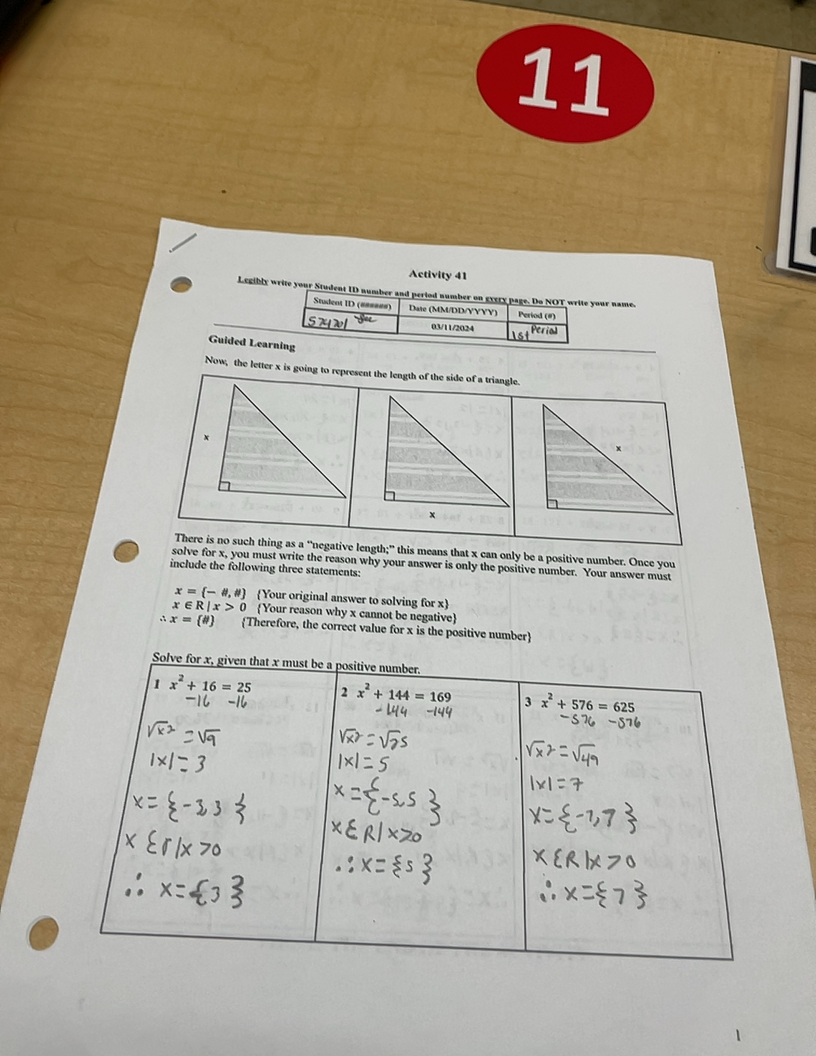 11
Activity 41
Legibly write your Student ID number and period number on every page. Do NOT write your name.
Student ID (######) Date (MM/DD/YYYY) Period (#)
03/11/2024 1st Period
Guided Learning
Now, the letter x is going to represent the length of the side of a triangle.
x
x
x
There is no such thing as a “negative length;” this means that x can only be a positive number. Once you
solve for x, you must write the reason why your answer is only the positive number. Your answer must
include the following three statements:
x = {− #, #} {Your original answer to solving for x}
x ∈ R | x > 0 {Your reason why x cannot be negative}
∴ x = {#} {Therefore, the correct value for x is the positive number}
Solve for x, given that x must be a positive number.
1 x² + 16 = 25
-16 -16
√x² = √9
|x| = 3
x = {-3,3}
x ε r | x > 0
∴ x = {3}
2 x² + 144 = 169
-144 -144
√x² = √25
|x| = 5
x = {-5,5}
x ε R | x > 0
∴ x = {5}
3 x² + 576 = 625
-576 -576
√x² = √49
|x| = 7
x = {-7,7}
x ε R | x > 0
∴ x = {7}
1